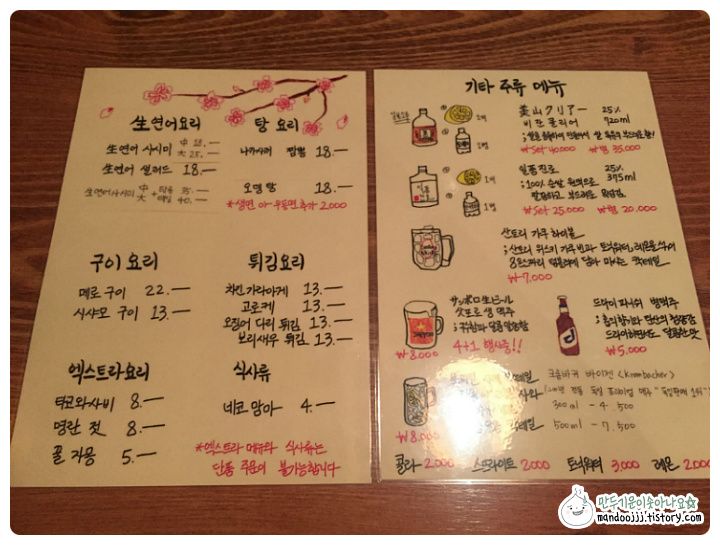 生연어요리
生연어 사시미 中 18.— 大 25.—
生연어 샐러드 18.—
生연어사시미 中 大 + 35.— 40.—
탕 요리
나가사키 짬뽕 18.—
오뎅탕 18.—
*생면 or 우동면추가 2.000
구이 요리
메로 구이 22.—
시샤모 구이 13.—
튀김요리
치킨 가라아게 13.—
고로케 13.—
오징어 다리 튀김 13.—
보리새우 튀김 13.—
엑스트라요리
타코와사비 8.—
명란 젓 8.—
콘 치즈 5.—
식사류
네코 맘마 4.—
*엑스트라 메뉴와 식사류는
단품 주문이 불가능합니다
기타 주류 메뉴
美山クリアー 25%
비잔 클리어 720ml
₩Set 40.000 ₩병 35.000
일품 진로 25%
;100% 순쌀 원액으로 375ml
깔끔하고 부드러운
₩Set 25.000 ₩병 20.000
산토리 가쿠 하이볼
;산토리 위스키 가쿠빈과 토닉워터, 레몬을
₩7.000
サッポロ生ビール
삿포로 생 맥주
4+1 행사중!!
₩8.000
드라이 피니쉬 병맥주
₩5.000
크롬바커 바이젠 <Krombacher>
300ml - 4.500
500ml - 7.500
₩8.000
콜라 2.000 스프라이트 2.000 토닉워터 3.000 레몬 2.000
만두기운이솟아나요☆
mandoojjj.tistory.com